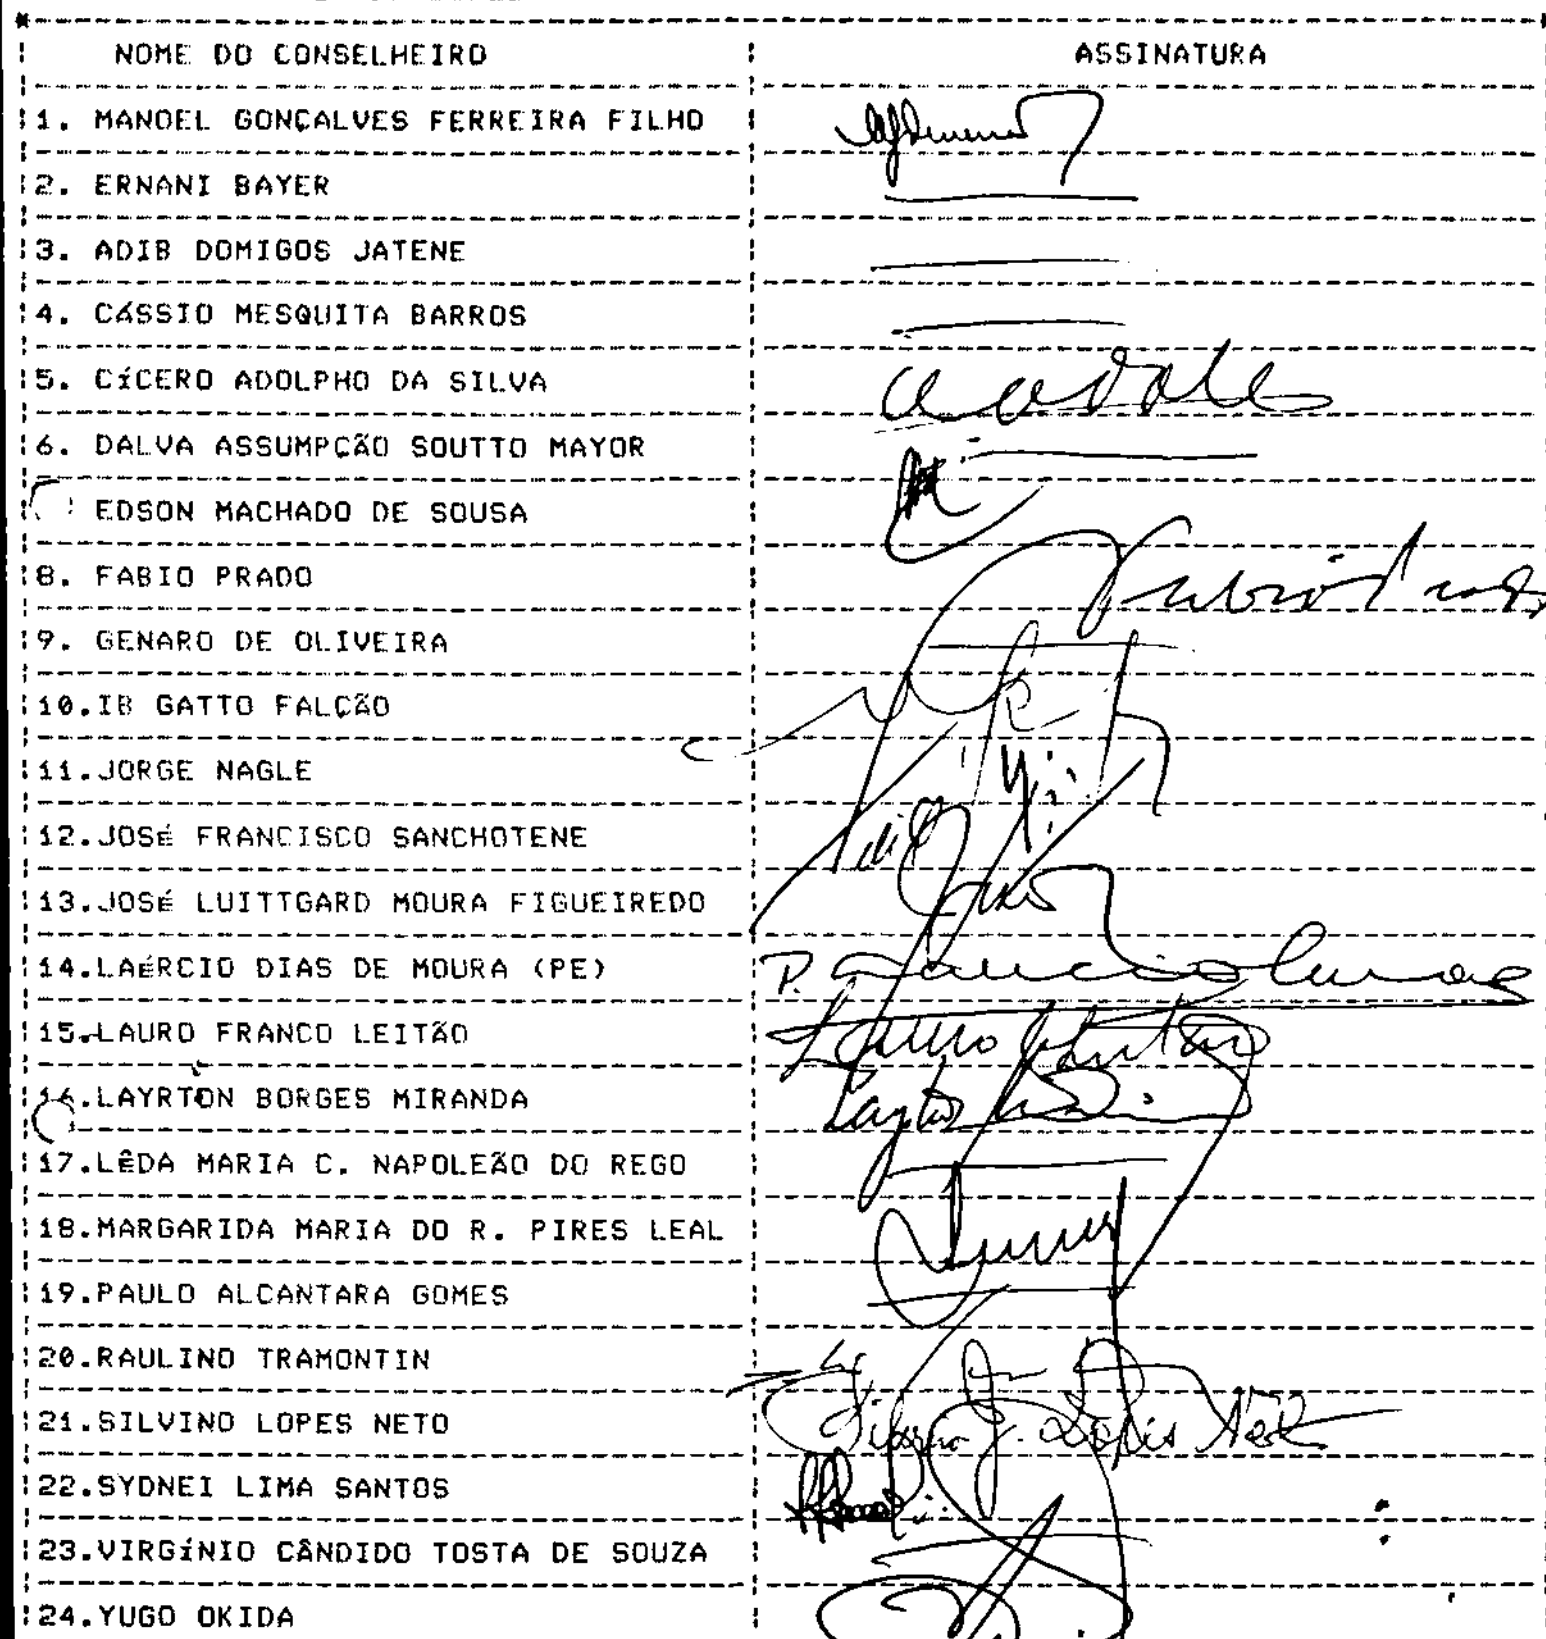 NOME DO CONSELHEIRO ASSINATURA
1. MANOEL GONÇALVES FERREIRA FILHO
2. ERNANI BAYER
3. ADIB DOMIGOS JATENE
4. CÁSSIO MESQUITA BARROS
5. CÍCERO ADOLPHO DA SILVA
6. DALVA ASSUMPCÃO SOUTTO MAYOR
EDSON MACHADO DE SOUSA
8. FABIO PRADO Fabio Prado
9. GENARO DE OLIVEIRA
10.IB GATTO FALCÃO
11.JORGE NAGLE
12.JOSÉ FRANCISCO SANCHOTENE
13.JOSÉ LUITTGARD MOURA FIGUEIREDO
14.LAÉRCIO DIAS DE MOURA (PE) P.
15.LAURO FRANCO LEITÃO Lauro Leitão
16.LAYRTON BORGES MIRANDA Layrton
17.LÊDA MARIA C. NAPOLEÃO DO REGO
18.MARGARIDA MARIA DO R. PIRES LEAL
19.PAULO ALCANTARA GOMES
20.RAULINO TRAMONTIN
21.SILVINO LOPES NETO Silvino J. Lopes Neto
22.SYDNEI LIMA SANTOS
23.VIRGÍNIO CÂNDIDO TOSTA DE SOUZA
24.YUGO OKIDA